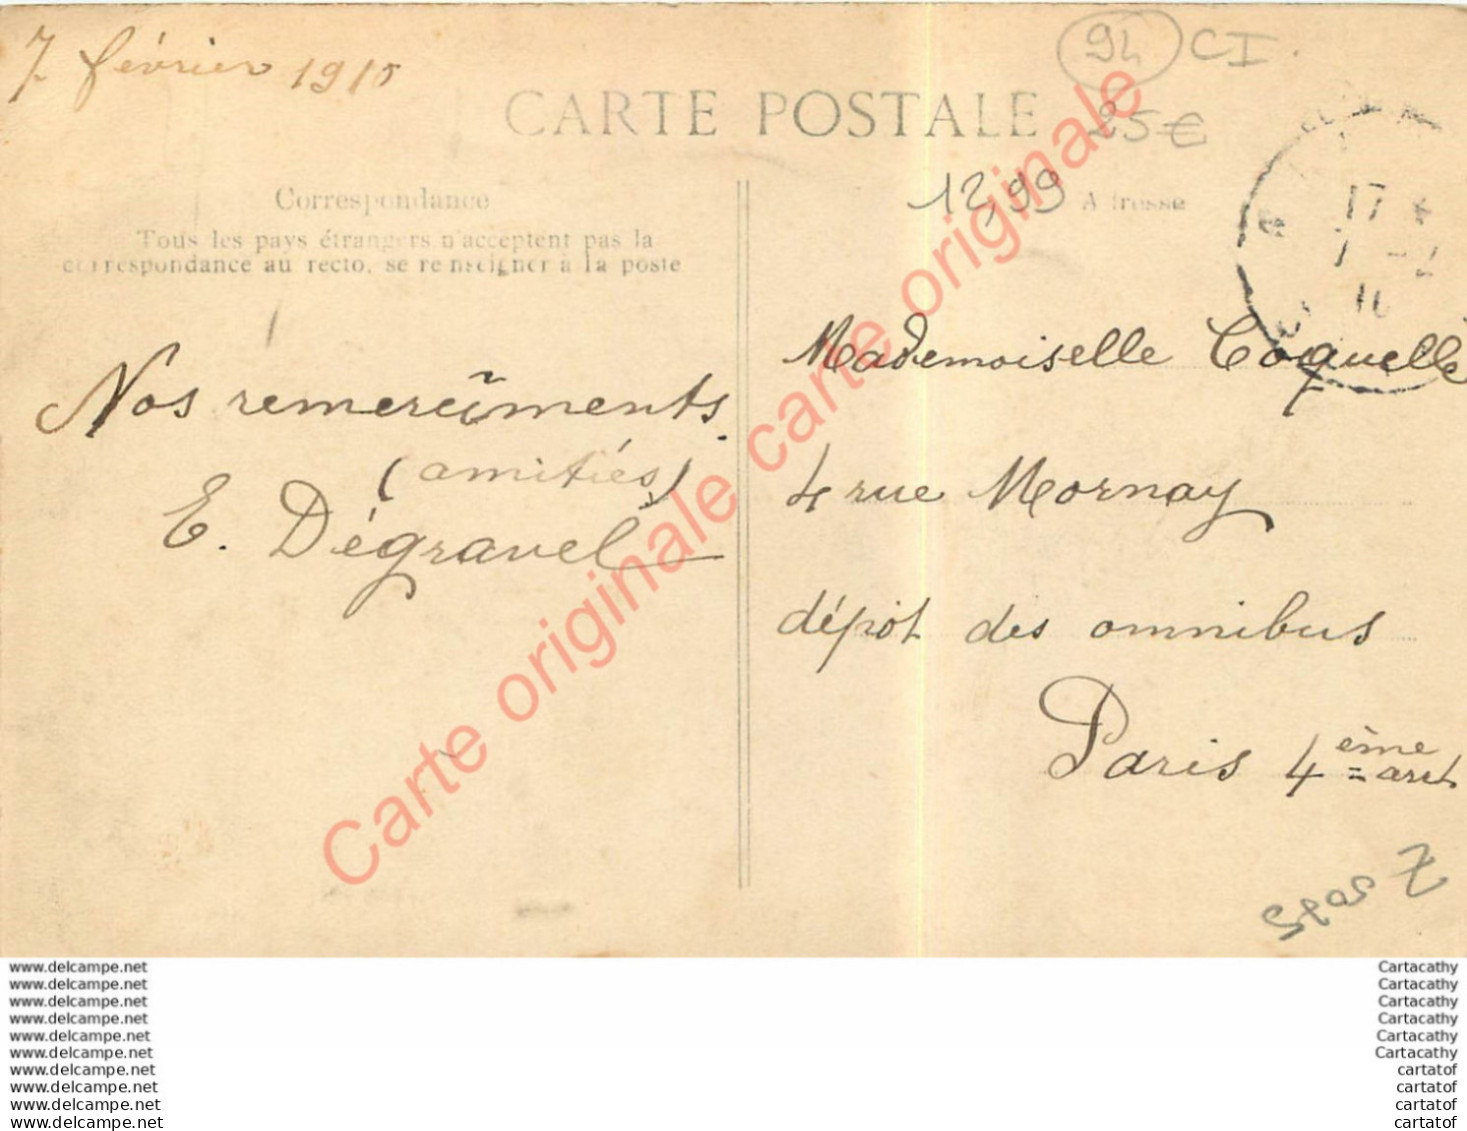 7 février 1910
94 CI
CARTE POSTALE
25€
12,99
Correspondance
Adresse
Tous les pays étrangers n'acceptent pas la
correspondance au recto, se renseigner à la poste
17
7 - 2
10
Nos remerciments.
(amitiés)
E. Dégravel
Mademoiselle Coquelle
4 rue Mornay
dépôt des omnibus
Paris 4ème arrt
Carte originale carte originale
www.delcampe.net
www.delcampe.net
www.delcampe.net
www.delcampe.net
www.delcampe.net
www.delcampe.net
www.delcampe.net
www.delcampe.net
www.delcampe.net
www.delcampe.net
Cartacathy
Cartacathy
Cartacathy
Cartacathy
Cartacathy
Cartacathy
cartatof
cartatof
cartatof
cartatof